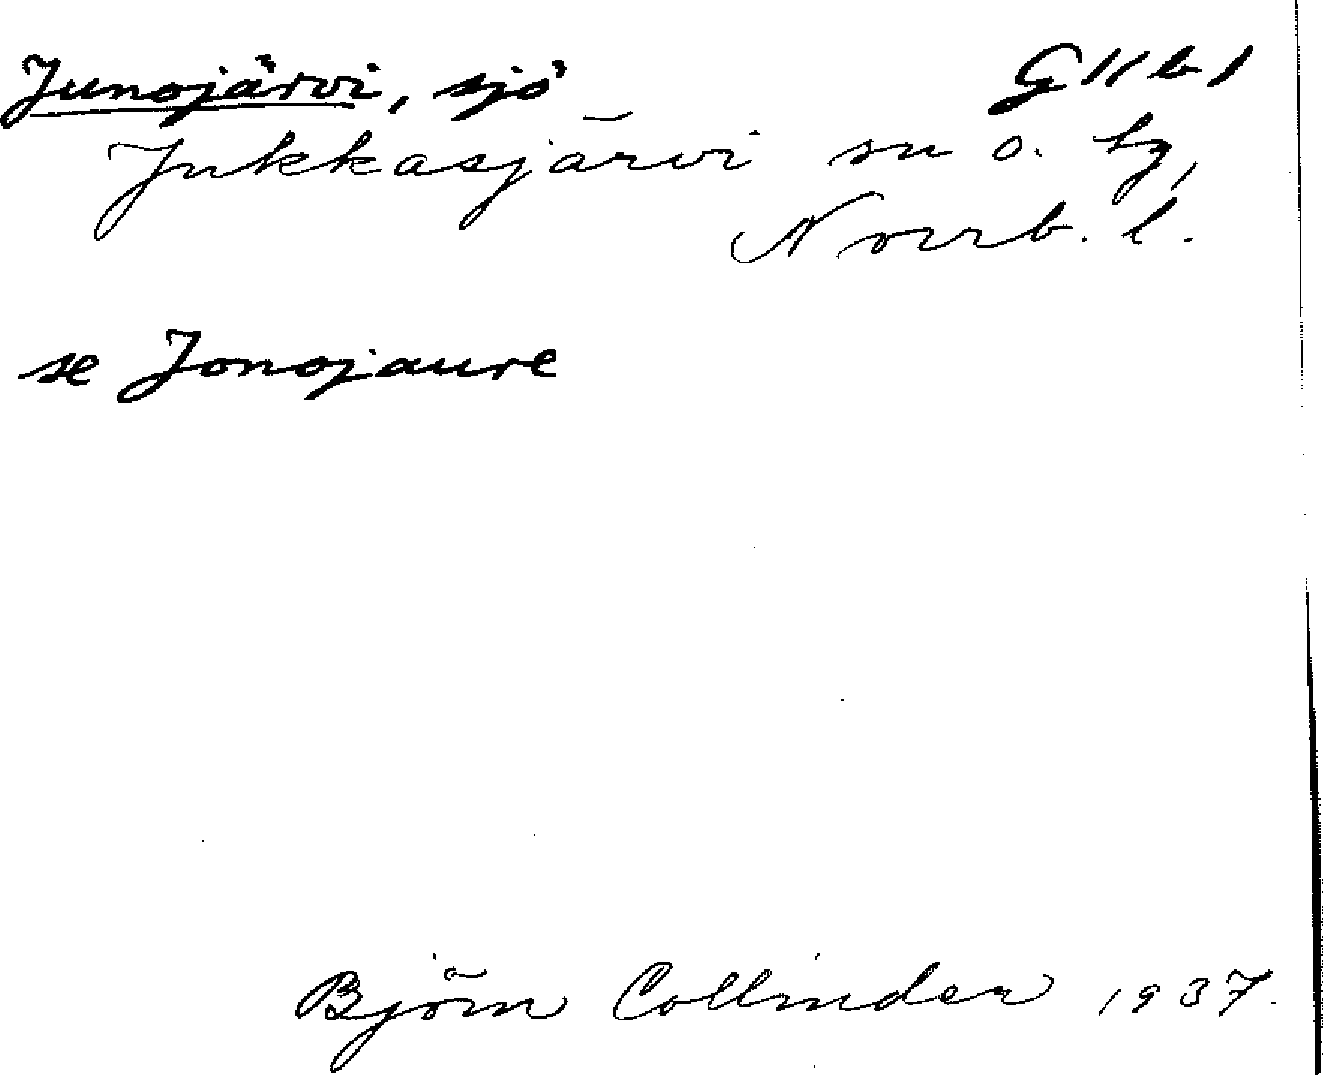 Junojärvi, sjö G 11 b 1
Jukkasjärvi sn o. tg,
Norrb. l.
se Jonojaure
Björn Collinder 1937.